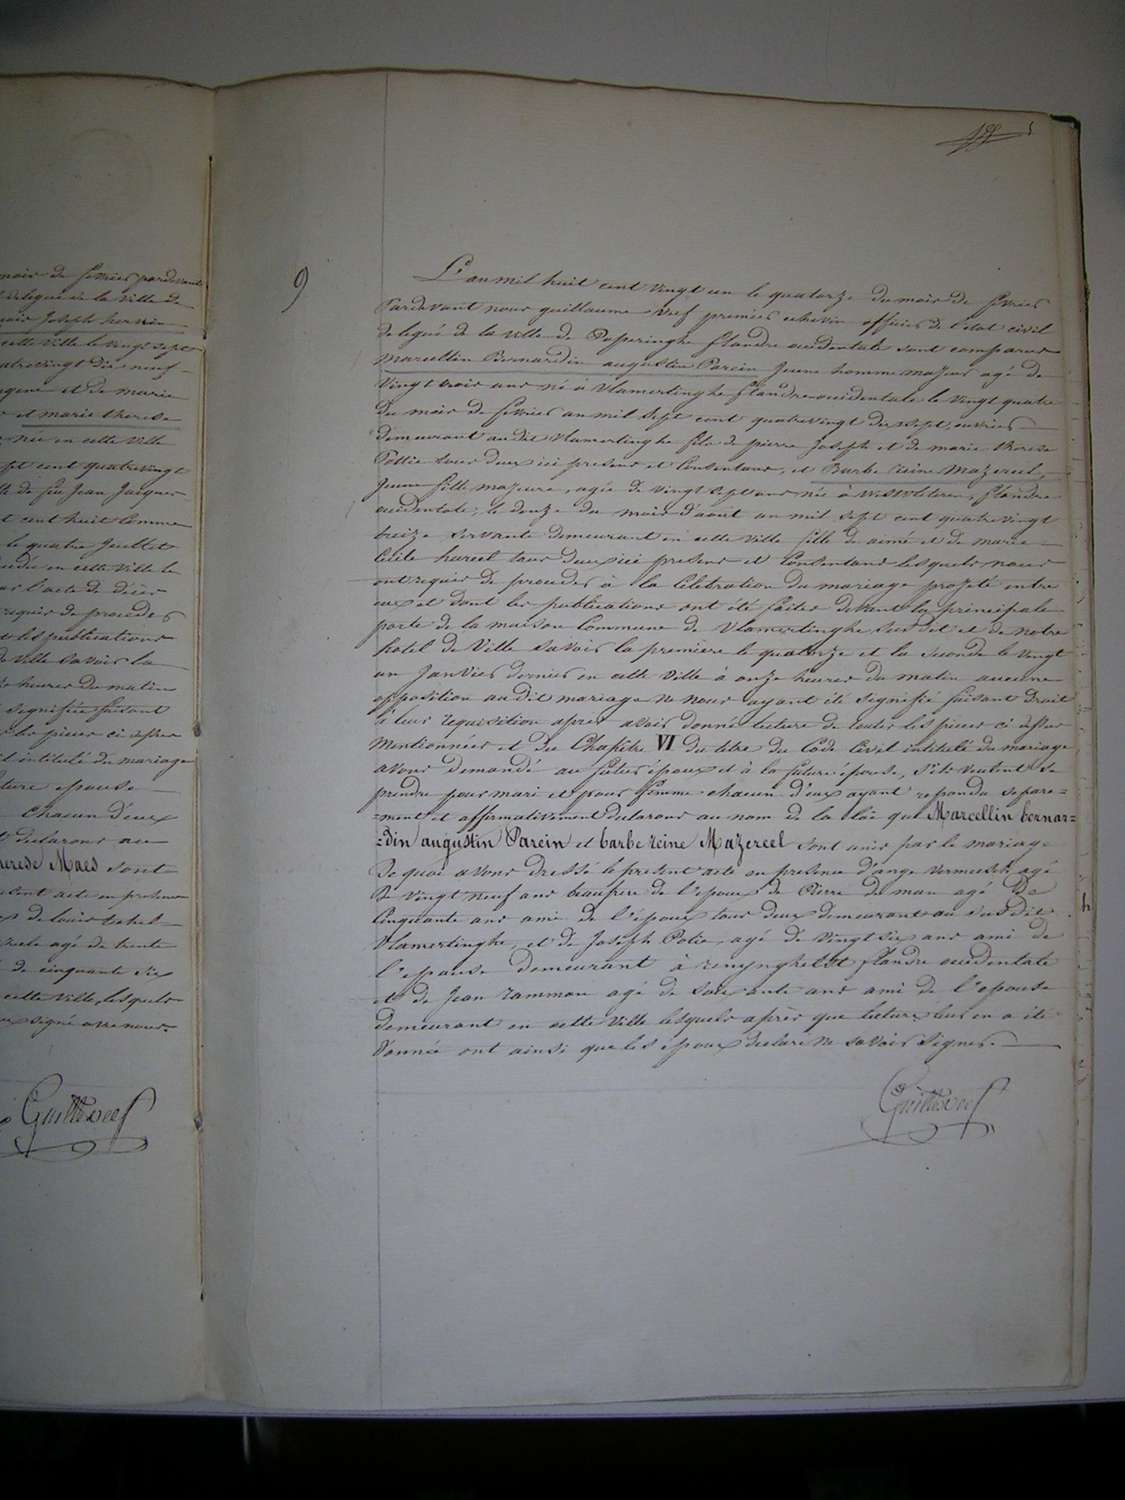 mois de fevrier pardevant
delegué de la ville de
Joseph
cette ville le vingt sept
quatrevingt dix neuf
et de marie
et marie therese
née en cette ville
sept cent quatrevingt
de feu Jean Jacques
cent huit comme
le quatre Juillet
en cette ville le
par l'acte de décès
requis de proceder
les publications
de ville savoir la
heures du matin
signifiée faisant
les pieces ci dessus
intitulé du mariage
future epouse
chacun d'eux
declarons au
therese Maes sont
acte en presence
de louis
agé de trente
de cinquante six
cette ville, lesquels
signé avec nous
Guille Deef
5
9
L'an mil huit cent vingt un le quatorze du mois de fevrier
Pardevant nous guillaume Deef premier echevin officier de l'etat civil
delegué de la ville de Poperinghe flandre occidentale sont comparus
Marcellin Bernardin augustin Parein Jeune homme majeur agé de
Vingt trois ans né à Vlamertinghe flandre occidentale le vingt quatre
du mois de fevrier an mil sept cent quatrevingt dix sept, ouvrier
demeurant audit Vlamertinghe fils de pierre Joseph et de marie therese
Pottie tous deux ici present et consentans, et Barbe reine Mazereel,
Jeune fille majeure, agée de vingt sept ans née à Westvleteren, flandre
occidentale, le douze du mois d'août an mil sept cent quatrevingt
treize servante demeurant en cette ville fille de aimé et de marie
Cecile hureel tous deux ici present et consentans lesquels nous
ont requis de proceder à la Celebration du mariage projeté entre
eux et dont les publications ont été faites devant la principale
porte de la maison Commune de Vlamertinghe susdit et de notre
hotel de Ville savoir la premiere le quatorze et la seconde le vingt
un Janvier dernier en cette ville à onze heures du matin aucune
opposition audit mariage ne nous ayant été signifié faisant Droit
a leur requisition apres avoir donné lecture de toutes les pieces ci dessus
Mentionnées et du Chapitre VI du titre du Code Civil intitulé du mariage
avons demandé au futur époux et à la future épouse, s'ils veulent se
prendre pour mari et pour femme chacun d'eux ayant repondu separe=
=ment et affirmativement declarons au nom de la loi que Marcellin bernar=
=din augustin Parein et barbe reine Mazereel sont unis par le mariage
De quoi avons dressé le present acte en presence d'ange vermeesch agé
de vingt neuf ans beaufrere de l'epoux de Pierre de man agé de
Cinquante ans ami de l'époux tous deux demeurant au susdit
Vlamertinghe, et de Joseph Potie, agé de vingt six ans ami de
l'epouse demeurant à renynghelst flandre occidentale
et de Jean rammon agé de soixante ans ami de l'epouse
demeurant en cette ville lesquels après que lecture leur en a été
donnée ont ainsi que les époux declaré ne savoir signer.
Guille Deef